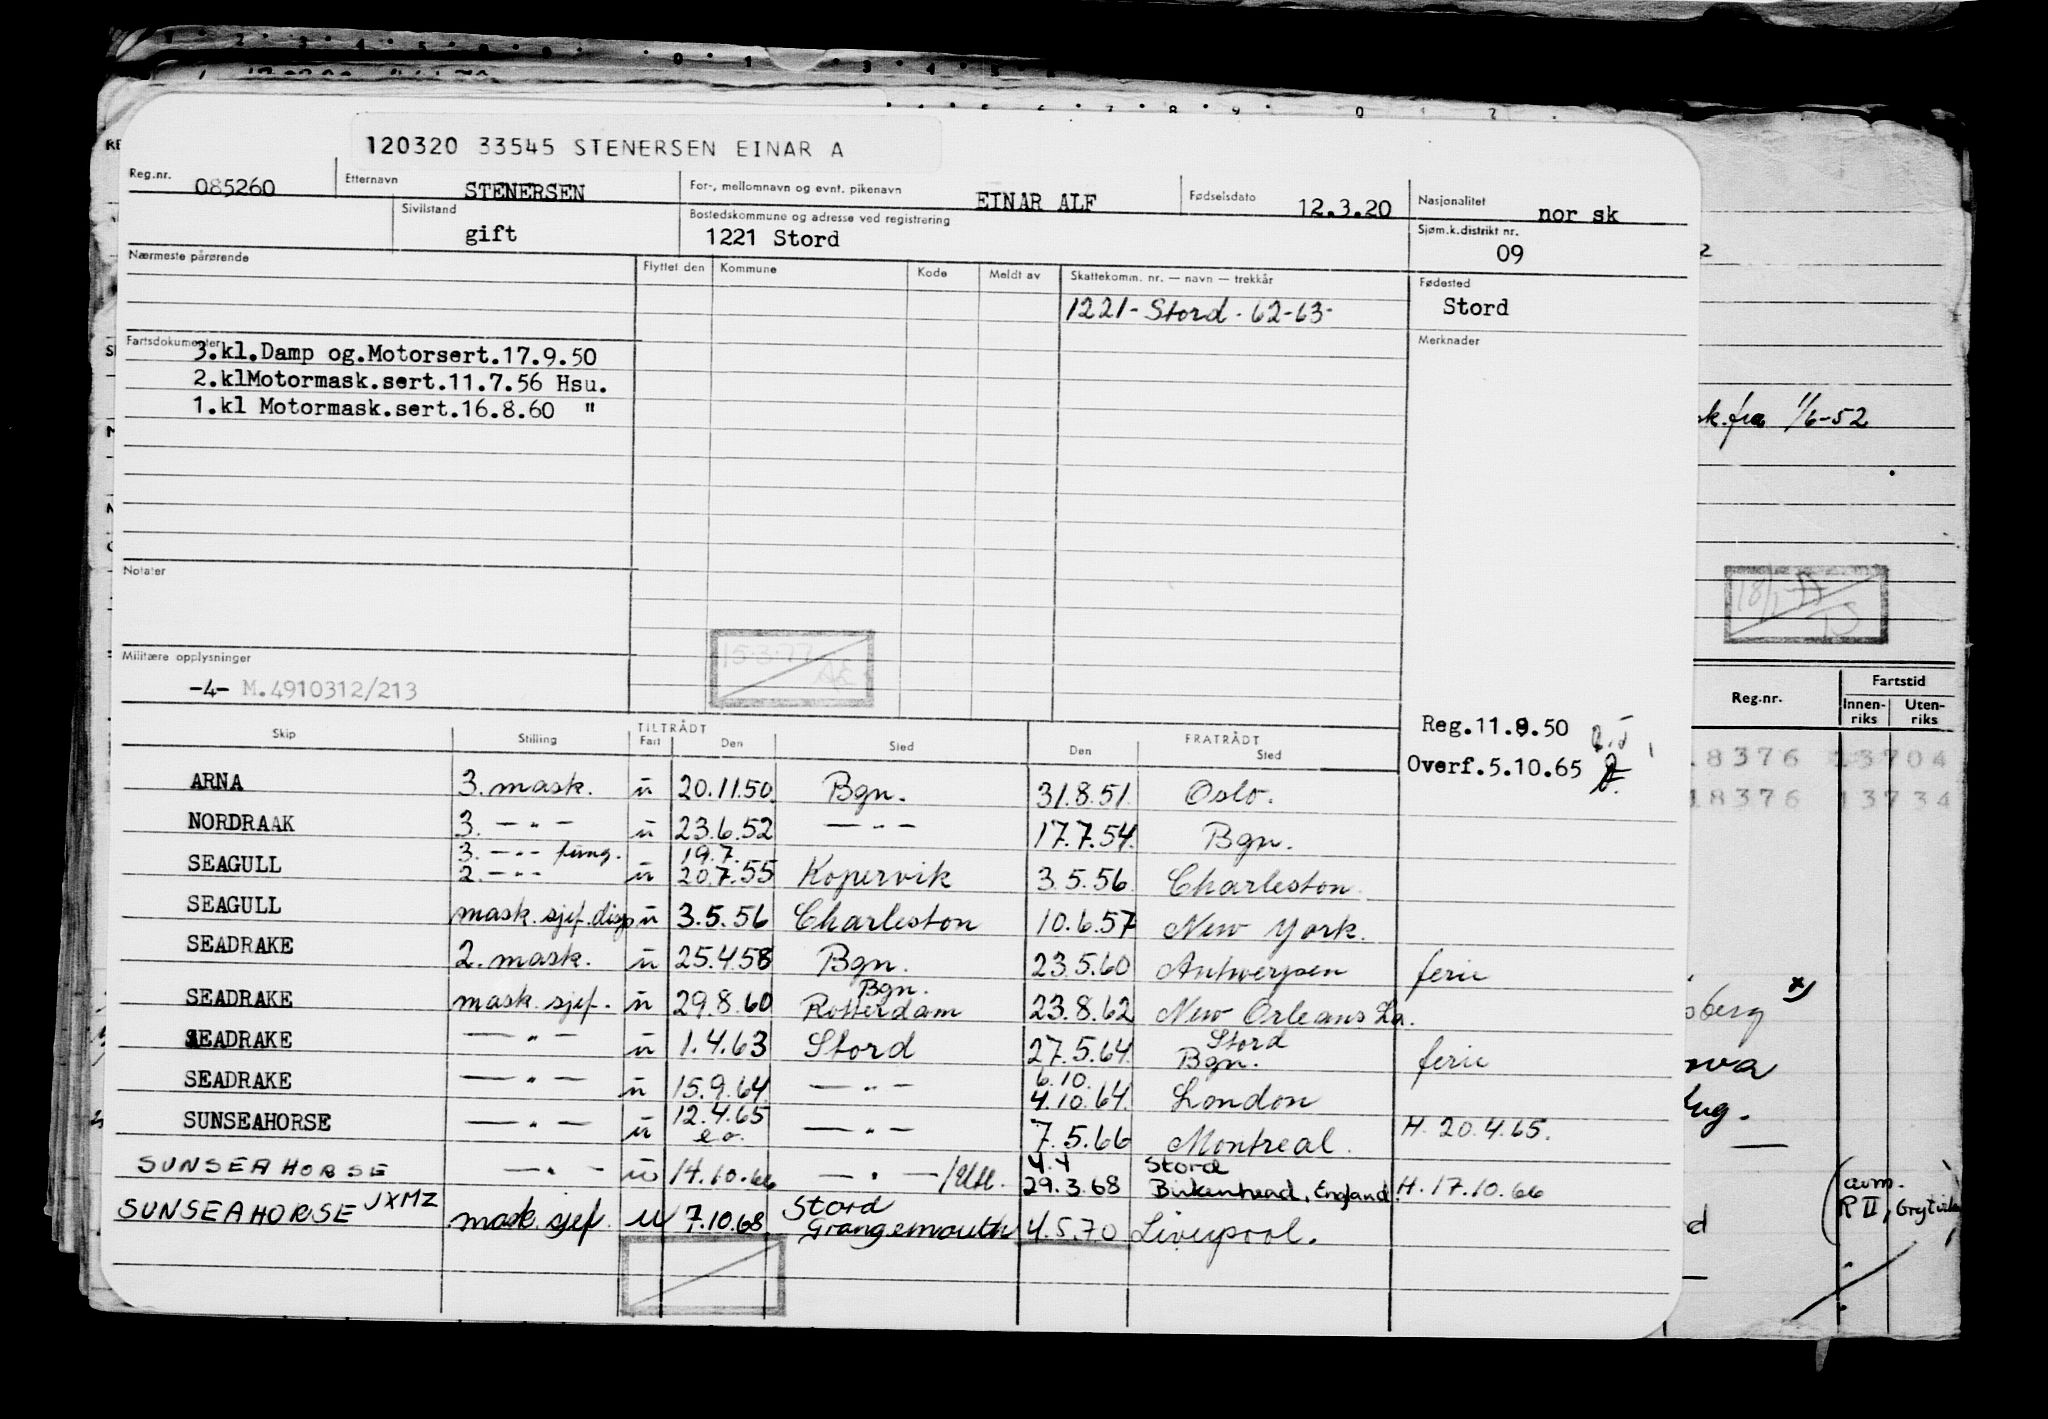 120320 33545 STENERSEN EINAR A
Reg.nr. 085260 Etternavn STENERSEN For-, mellomnavn og evnt. pikenavn EINAR ALF Fødselsdato 12.3.20 Nasjonalitet nor sk
Sivilstand gift Bostedskommune og adresse ved registrering 1221 Stord Sjøm.k.distrikt nr. 09
Nærmeste pårørende Flyttet den Kommune Kode Meldt av Skattekomm. nr. — navn — trekkår Fødested
1221 - Stord - 62-63- Stord
Fartsdokumenter Merknader
3.kl.Damp og.Motorsert.17.9.50
2.klMotormask.sert.11.7.56 Hsu.
1.kl Motormask.sert.16.8.60 "
sk. fra 1/6-52
Notater
15.3.77
Militære opplysninger
-4- M.4910312/213
Reg.nr. Fartstid
Innen-riks Uten-riks
Reg.11.9.50
Overf.5.10.65
TILTRÅDT FRATRÅDT
Skip Stilling Fart Den Sted Den Sted
ARNA 3. mask. u 20.11.50 Bgn. 31.8.51 Oslo.
NORDRAAK 3. — " — u 23.6.52 — " — 17.7.54 Bgn.
3. — " — fung. 19.7.
SEAGULL 2. — " — u 20.7.55 Kopervik 3.5.56 Charleston
SEAGULL mask. sjef. disp u 3.5.56 Charleston 10.6.57 New York.
SEADRAKE 2. mask. u 25.4.58 Bgn. 23.5.60 Antwerpen ferie
Bgn.
SEADRAKE mask. sjef. u 29.8.60 Rotterdam 23.8.62 New Orleans La.
Stord
SEADRAKE — " — u 1.4.63 Stord 27.5.64 Bgn. ferie
6.10.
SEADRAKE — " — u 15.9.64 — " — 4.10.64 London
12.4.65
SUNSEAHORSE — " — u e.o. — " — 7.5.66 Montreal. H. 20.4.65.
4.4 Stord
SUNSEAHORSE — " — u 14.10.66 — " — 29.3.68 Birkenhead, England H. 17.10.66
Stord
SUNSEAHORSE JXMZ mask. sjef. u 7.10.68 Grangemouth 4.5.70 Liverpool.
18376 13704
18376 13734